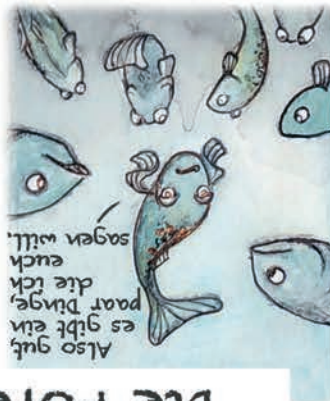 Also gut,
es gibt ein
paar Dinge,
die ich
euch
sagen will.